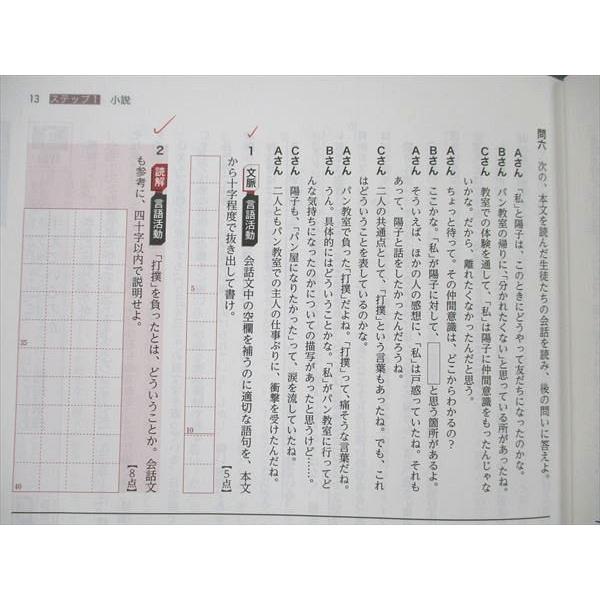 13 ステップ1 小説
問六 次の、本文を読んだ生徒たちの会話を読み、後の問いに答えよ。
Aさん 「私」と陽子は、このときにどうやって友だちになったのかな。
Bさん パン教室の帰りに、「分かれたくない」と思っている所があったね。
Cさん 教室での体験を通して、「私」は陽子に仲間意識をもったんじゃな
いかな。だから、離れたくなかったんだと思う。
Aさん ちょっと待って。その仲間意識は、どこからわかるの?
Bさん ここかな。「私」が陽子に対して、 と思う箇所があるよ。
Aさん そういえば、ほかの人の感想に、「私」は戸惑っていたね。それも
あって、陽子と話をしたかったんだろうね。
Cさん 二人の共通点として、「打撲」という言葉もあったね。でも、これ
はどういうことを表しているのかな。
Aさん パン教室で負った「打撲」だよね。「打撲」って、痛そうな言葉だね。
Bさん うん。具体的にはどういうことかな。「私」がパン教室に行ってど
んな気持ちになったのかについての描写があったと思うけど……。
Cさん 陽子も、「パン屋になりたかった」って、涙を流していたね。
Aさん 二人ともパン教室での主人の仕事ぶりに、衝撃を受けたんだね。
1 文脈 言語活動 会話文中の空欄を補うのに適切な語句を、本文
から十字程度で抜き出して書け。 【5点】
5
10
2 読解 言語活動 「打撲」を負ったとは、どういうことか。会話文
も参考に、四十字以内で説明せよ。 【8点】
35
40